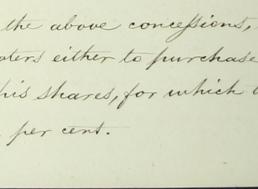 the above concessions,
oters either to purchase
his shares, for which
per cent.